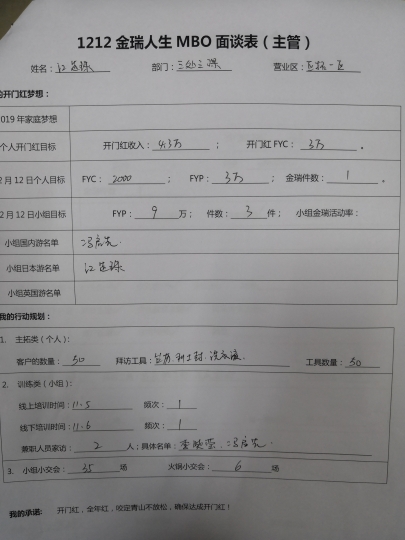 1212金瑞人生MBO面谈表（主管）
姓名： 部门：三处三课 营业区：区拓一区
的开门红梦想：
2019年家庭梦想
个人开门红目标 开门红收入：4.3万； 开门红FYC：3万。
2月12日个人目标 FYC：2000； FYP：3万； 金瑞件数：1。
2月12日小组目标 FYP：9万； 件数：3件； 小组金瑞活动率：
小组国内游名单
小组日本游名单
小组英国游名单
我的行动规划：
1. 主拓类（个人）：
客户的数量：50 拜访工具： 工具数量：50
2. 训练类（小组）：
线上培训时间：11.5 频次：1
线下培训时间：11.6 频次：1
兼职人员家访：2人；具体名单：
3. 小组小交会：35场 火锅小交会：6场
我的承诺： 开门红，全年红，咬定青山不放松，确保达成开门红！